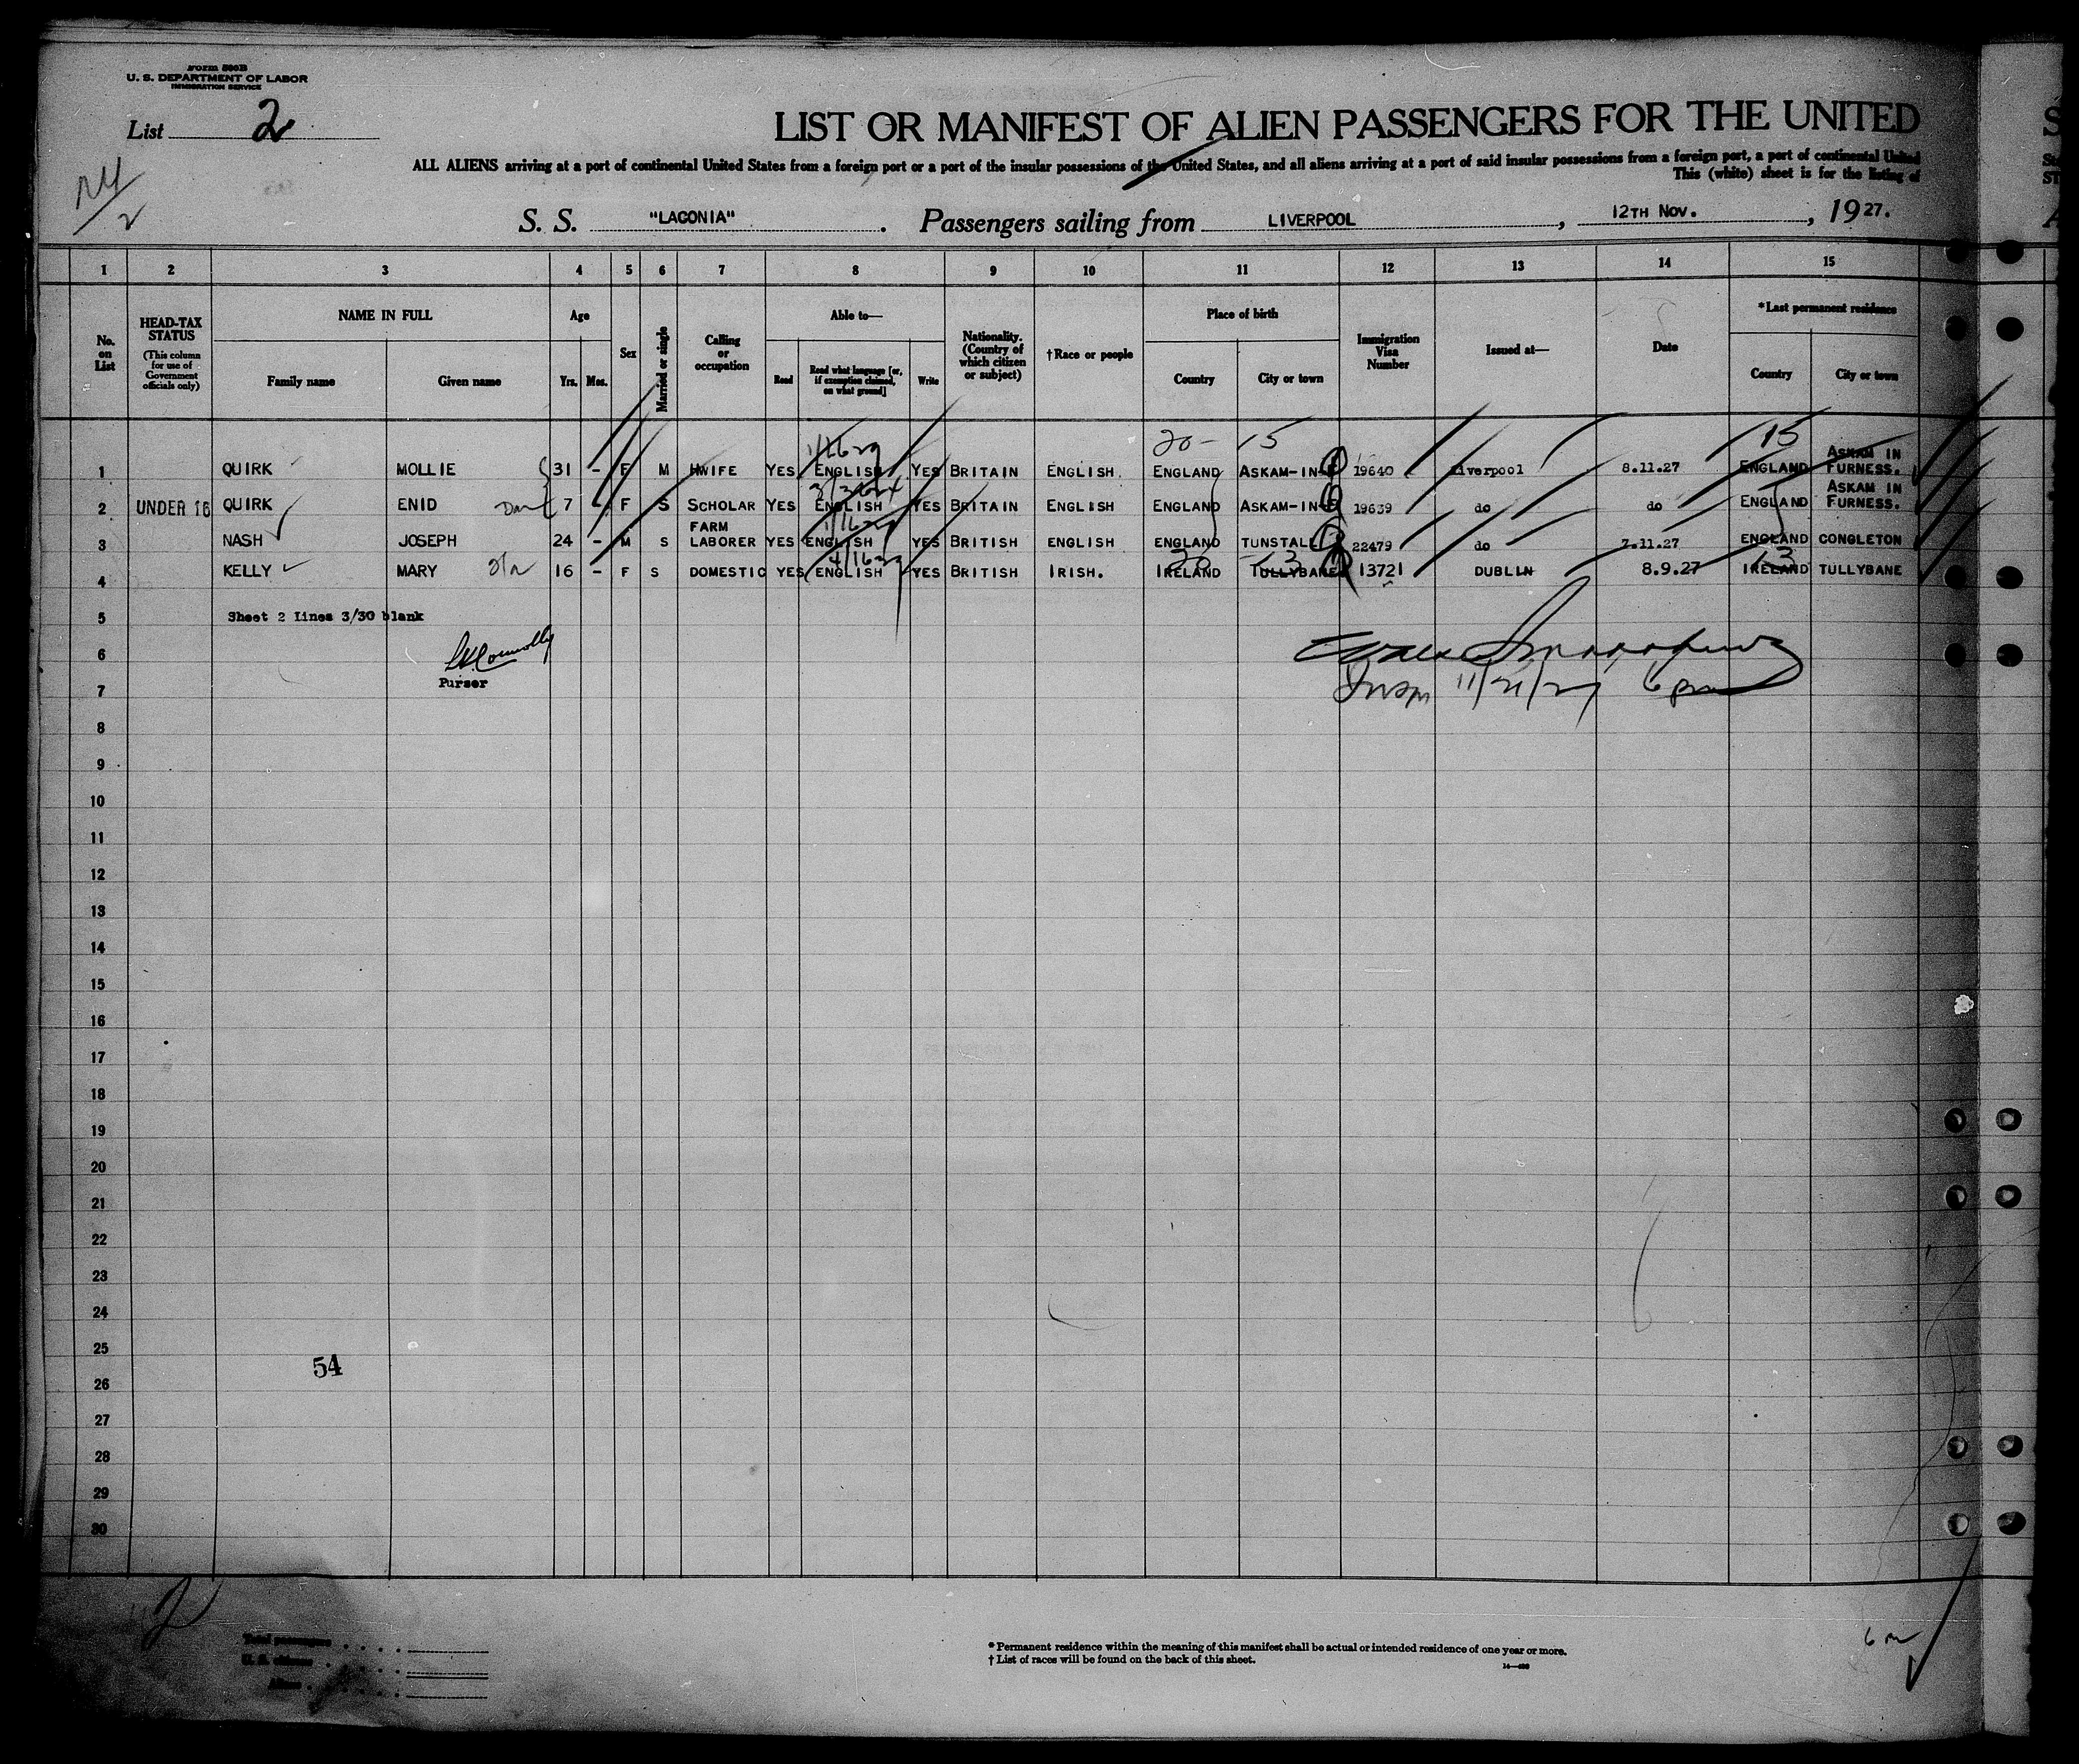 Form 500B
U. S. DEPARTMENT OF LABOR
IMMIGRATION SERVICE
List 2
LIST OR MANIFEST OF ALIEN PASSENGERS FOR THE UNITED
ALL ALIENS arriving at a port of continental United States from a foreign port or a port of the insular possessions of the United States, and all aliens arriving at a port of said insular possessions from a foreign port, a port of continental United
This (white) sheet is for the listing of
S. S. "LACONIA". Passengers sailing from LIVERPOOL, 12TH NOV., 1927.
1 2 3 4 5 6 7 8 9 10 11 12 13 14 15
No. on List
HEAD-TAX STATUS
(This column for use of Government officials only)
NAME IN FULL
Family name Given name
Age
Yrs. Mos.
Sex
Married or single
Calling or occupation
Able to—
Read
Read what language [or, if exemption claimed, on what ground]
Write
Nationality. (Country of which citizen or subject)
†Race or people
Place of birth
Country City or town
Immigration Visa Number
Issued at—
Date
*Last permanent residence
Country City or town
20- 15 15
1 QUIRK MOLLIE 31 - F M HWIFE YES ENGLISH YES BRITAIN ENGLISH. ENGLAND ASKAM-IN-F 19640 Liverpool 8.11.27 ENGLAND ASKAM IN FURNESS.
2 UNDER 16 QUIRK ENID 7 - F S SCHOLAR YES ENGLISH YES BRITAIN ENGLISH ENGLAND ASKAM-IN-F 19639 do do ENGLAND ASKAM IN FURNESS.
3 NASH JOSEPH 24 - M S FARM LABORER YES ENGLISH YES BRITISH ENGLISH ENGLAND TUNSTALL 22479 do 7.11.27 ENGLAND CONGLETON
4 KELLY MARY 16 - F S DOMESTIC YES ENGLISH YES BRITISH IRISH. IRELAND TULLYBANE 13721 DUBLIN 8.9.27 IRELAND TULLYBANE
5 Sheet 2 Lines 3/30 blank
6
Connolly
Purser
Insp 11/21/27 6 pm
7
8
9
10
11
12
13
14
15
16
17
18
19
20
21
22
23
24
25
54
26
27
28
29
30
2
Total passengers
U. S. citizens
Aliens
*Permanent residence within the meaning of this manifest shall be actual or intended residence of one year or more.
†List of races will be found on the back of this sheet.